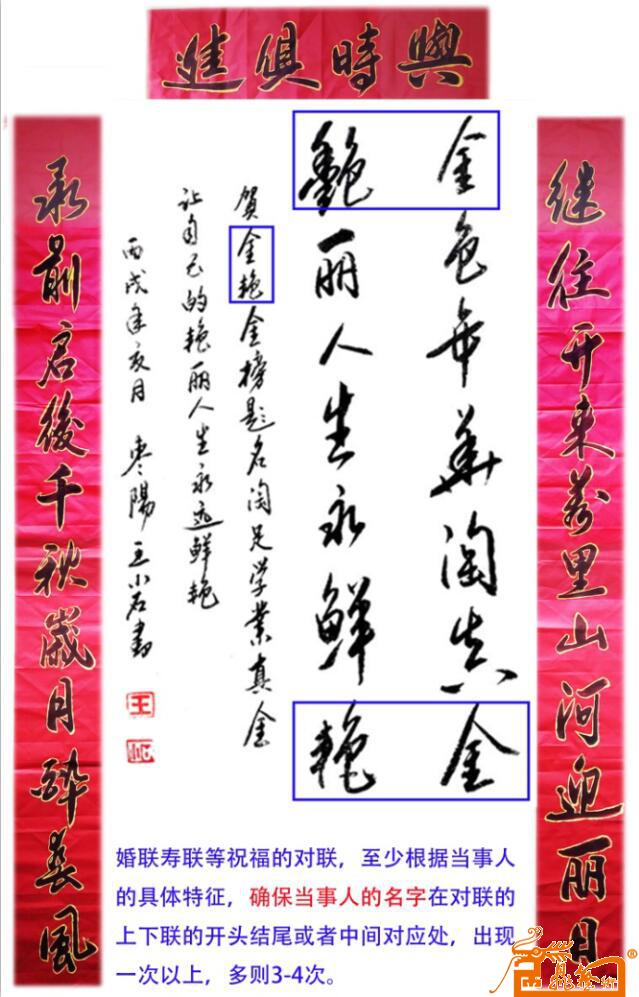 與時俱進
继往开来萬里山河迎丽月
承前启後千秋歲月醉春風
金色年華淘真金
艷丽人生永鲜艳
賀金艳金榜题名淘足学業真金
让自己的艳丽人生永远鲜艳
丙戌年亥月 枣陽王小石書
王
婚联寿联等祝福的对联，至少根据当事人
的具体特征，确保当事人的名字在对联的
上下联的开头结尾或者中间对应处，出现
一次以上，多则3-4次。